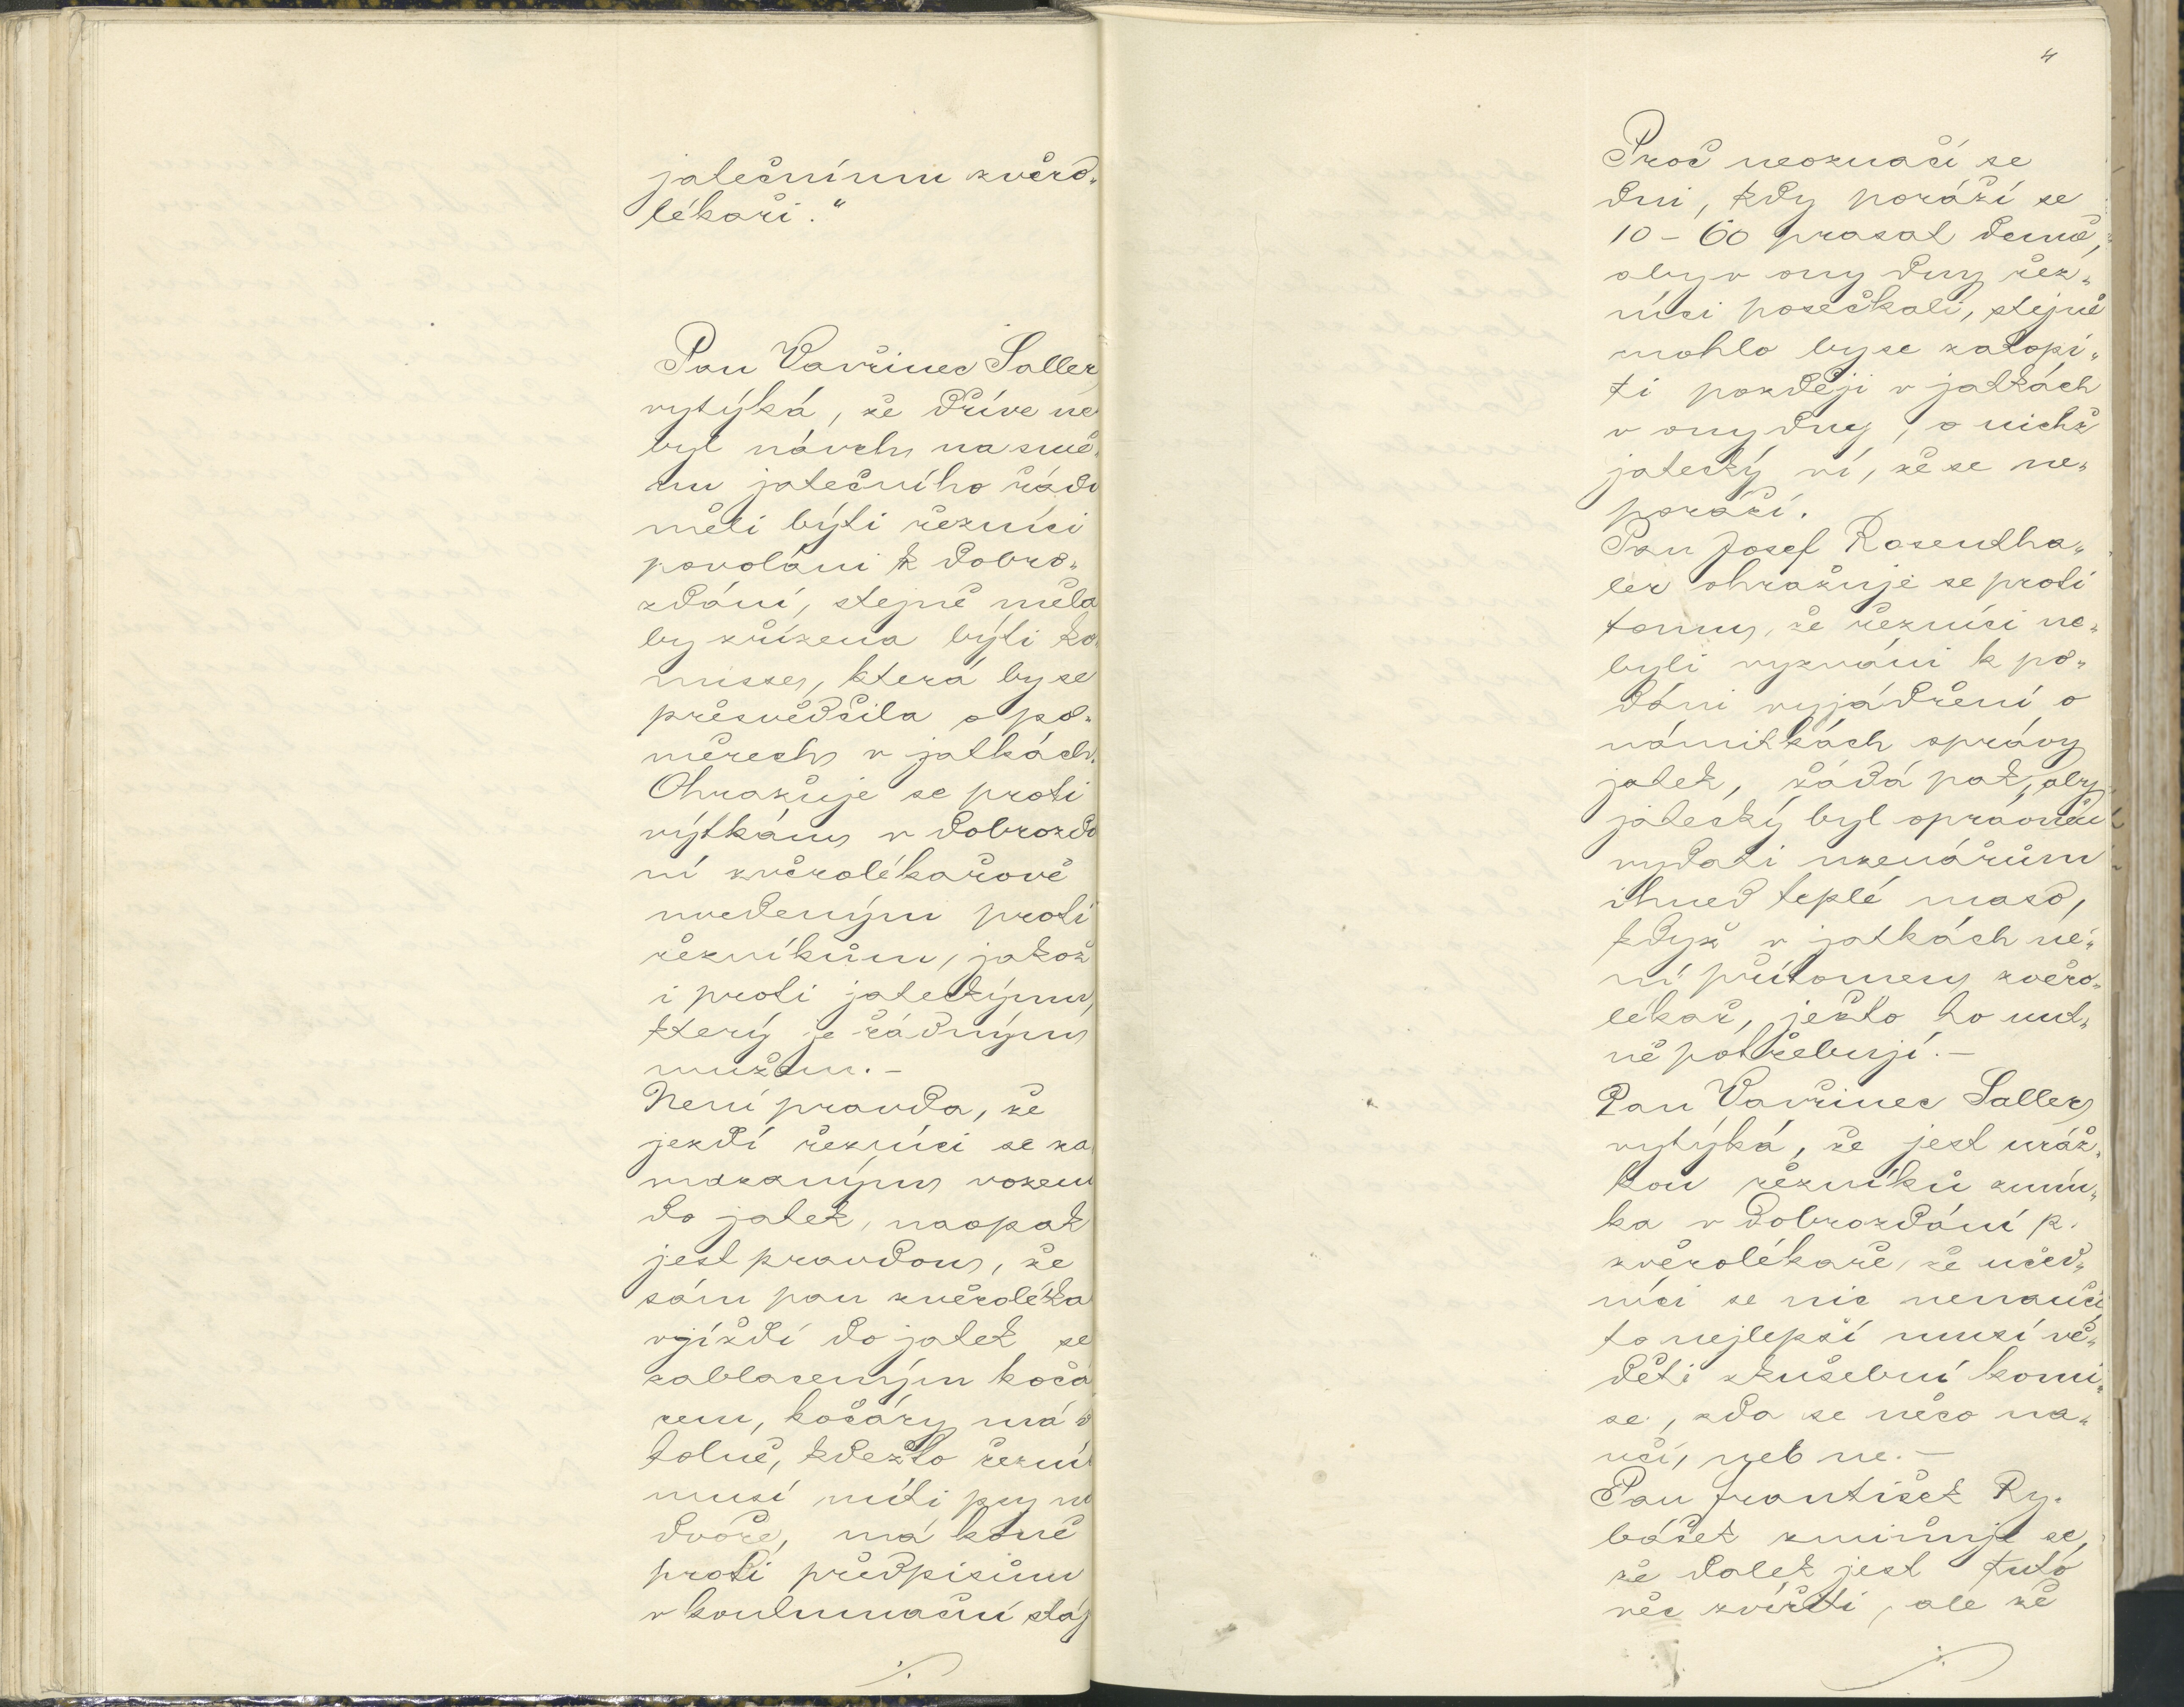 jatečnímu zvěro„
lékaři.“
Pan Vavřinec Saller
vytýká, že dříve ne
byl návrh na smě„
nu jatečního řádu
měli býti řezníci
povoláni k dobro„
zdání, stejně měla
by zřízena býti ko„
misse, která by se
přesvědčila o po„
měrech v jatkách.
Ohražuje se proti
výtkám v dobrozdá
ní zvěrolékařově
uvedeným proti
řezníkům, jakož
i proti jateckýmu,
který je řádným
mužem. –
Není pravda, že
jezdí řezníci se za
mazaným vozem
do jatek, naopak
jest pravdou, že
sám pan zvěroléka
vjíždí do jatek se
zablaceným kočá
rem, kočáry má v
kolně, kdežto řezní
musí míti psy na
dvoře, má koně
proti předpisům
v kontumační stáj
4
Proč neoznačí se
dni, kdy poráží se
10–60 prasat denně,
aby v ony dny řez„
níci posečkali, stejně
mohlo by se zatopi„
ti později v jatkách
v ony dny, o nichž
jatecký ví, že se ne„
poráží.
Pan Josef Rosentha„
ler ohražuje se proti
tomu, že řezníci ne„
byli vyzváni k po„
dání vyjádření o
námitkách správy
jatek, žádá pak, aby
jatecký byl oprávněn
vydati uzenářům
ihned teplé maso,
když v jatkách ne„
ní přítomen zvěro„
lékař, ježto ho nut„
ně potřebují. –
Pan Vavřinec Saller
vytýká, že jest uráž„
kou řezníků zmín„
ka v dobrozdání p.
zvěrolékaře, že učed„
níci se nic nenaučí
to nejlepší musí vě„
děti zkušební komi„
se, zda se něco na„
učí, neb ne. –
Pan František Ry„
báček zmiňuje se,
že dalek jest tuto
věc zvířiti, ale že